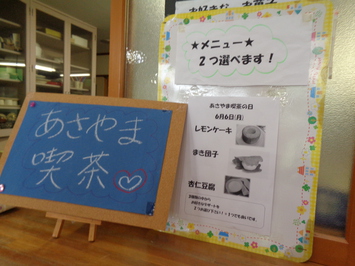 あさやま
喫茶
★メニュー★
2つ選べます！
あさやま喫茶の日
6月6日(月)
レモンケーキ
まき団子
杏仁豆腐